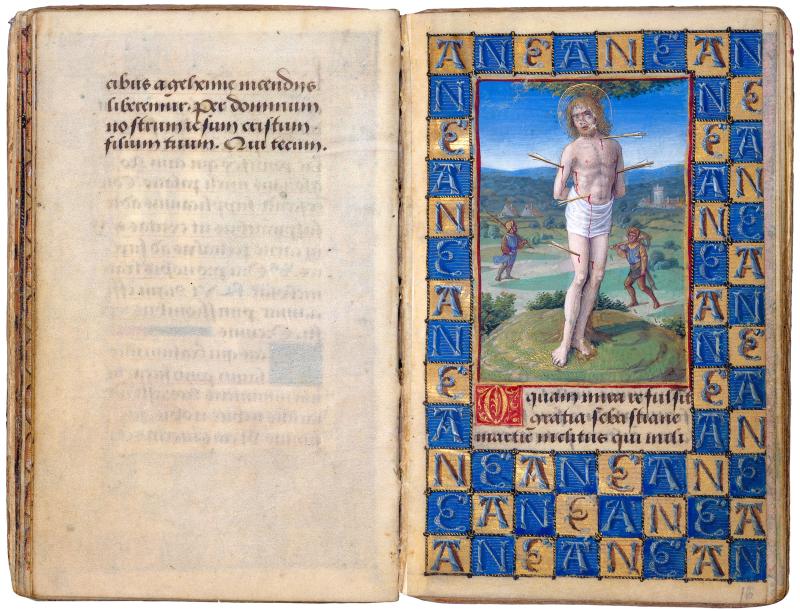 cibus a gehenne incendiis
liberemur. Per dominum
nostrum iesum cristum
filium tuum. Qui tecum.
A N E A N E A N
N N E
E E A
A A N
N N E
E E A
A A N
N N E
E E A
A A N
O quam mira refulsit
gratia sebastiane
martir inclitus qui mili
N E A N E A N E
E A N E A N E A
A N E A N E A N
16